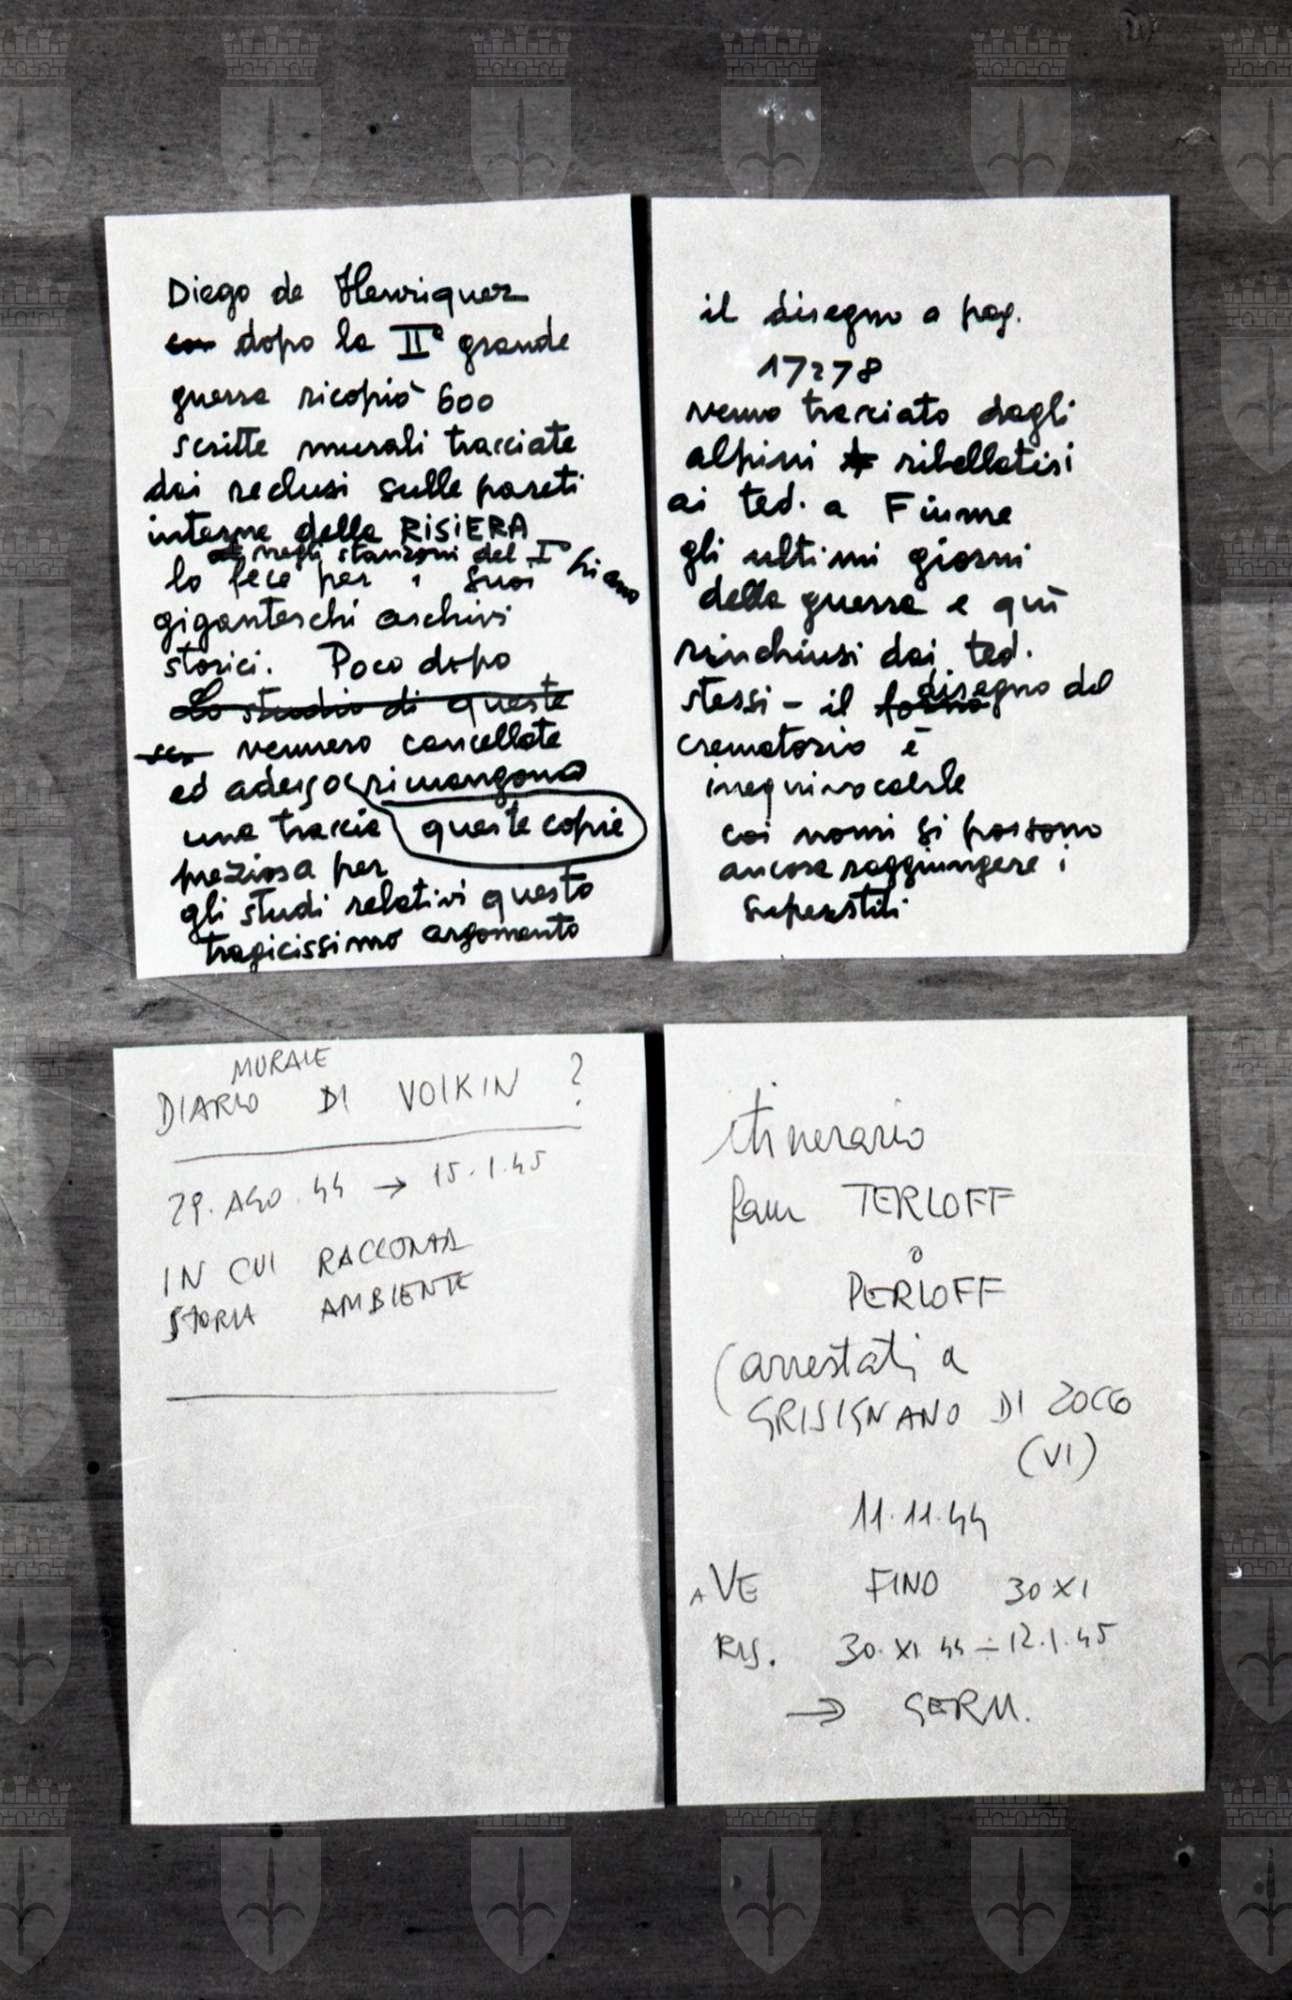 Diego de Henriquez
con dopo la IIª grande
guerra ricopiò 600
scritte murali tracciate
dai reclusi sulle pareti
interne della RISIERA
negli stanzoni del I° piano
lo fece per i suoi
giganteschi archivi
storici. Poco dopo
Lo studio di queste
vennero cancellate
ed adesso rimangono
una traccia queste copie
preziosa per
gli studi relativi questo
tragicissimo argomento
il disegno a pag.
17278
venno tracciato dagli
alpini ribellatisi
ai ted. a Fiume
gli ultimi giorni
della guerra e quì
rinchiusi dai ted.
stessi - il forno disegno del
crematorio è
inequivocabile
coi nomi si possono
ancora raggiungere i
superstiti
MURALE
DIARIO DI VOLKIN ?
29. AGO. 44 → 15.1.45
IN CUI RACCONTA
STORIA AMBIENTE
itinerario
fam TERLOFF
o
PERLOFF
(arrestati a
GRISIGNANO DI ZOCCO
(VI)
11.11.44
A VE FINO 30 XI
RIS. 30.XI 44 ÷ 12.1.45
→ GERM.